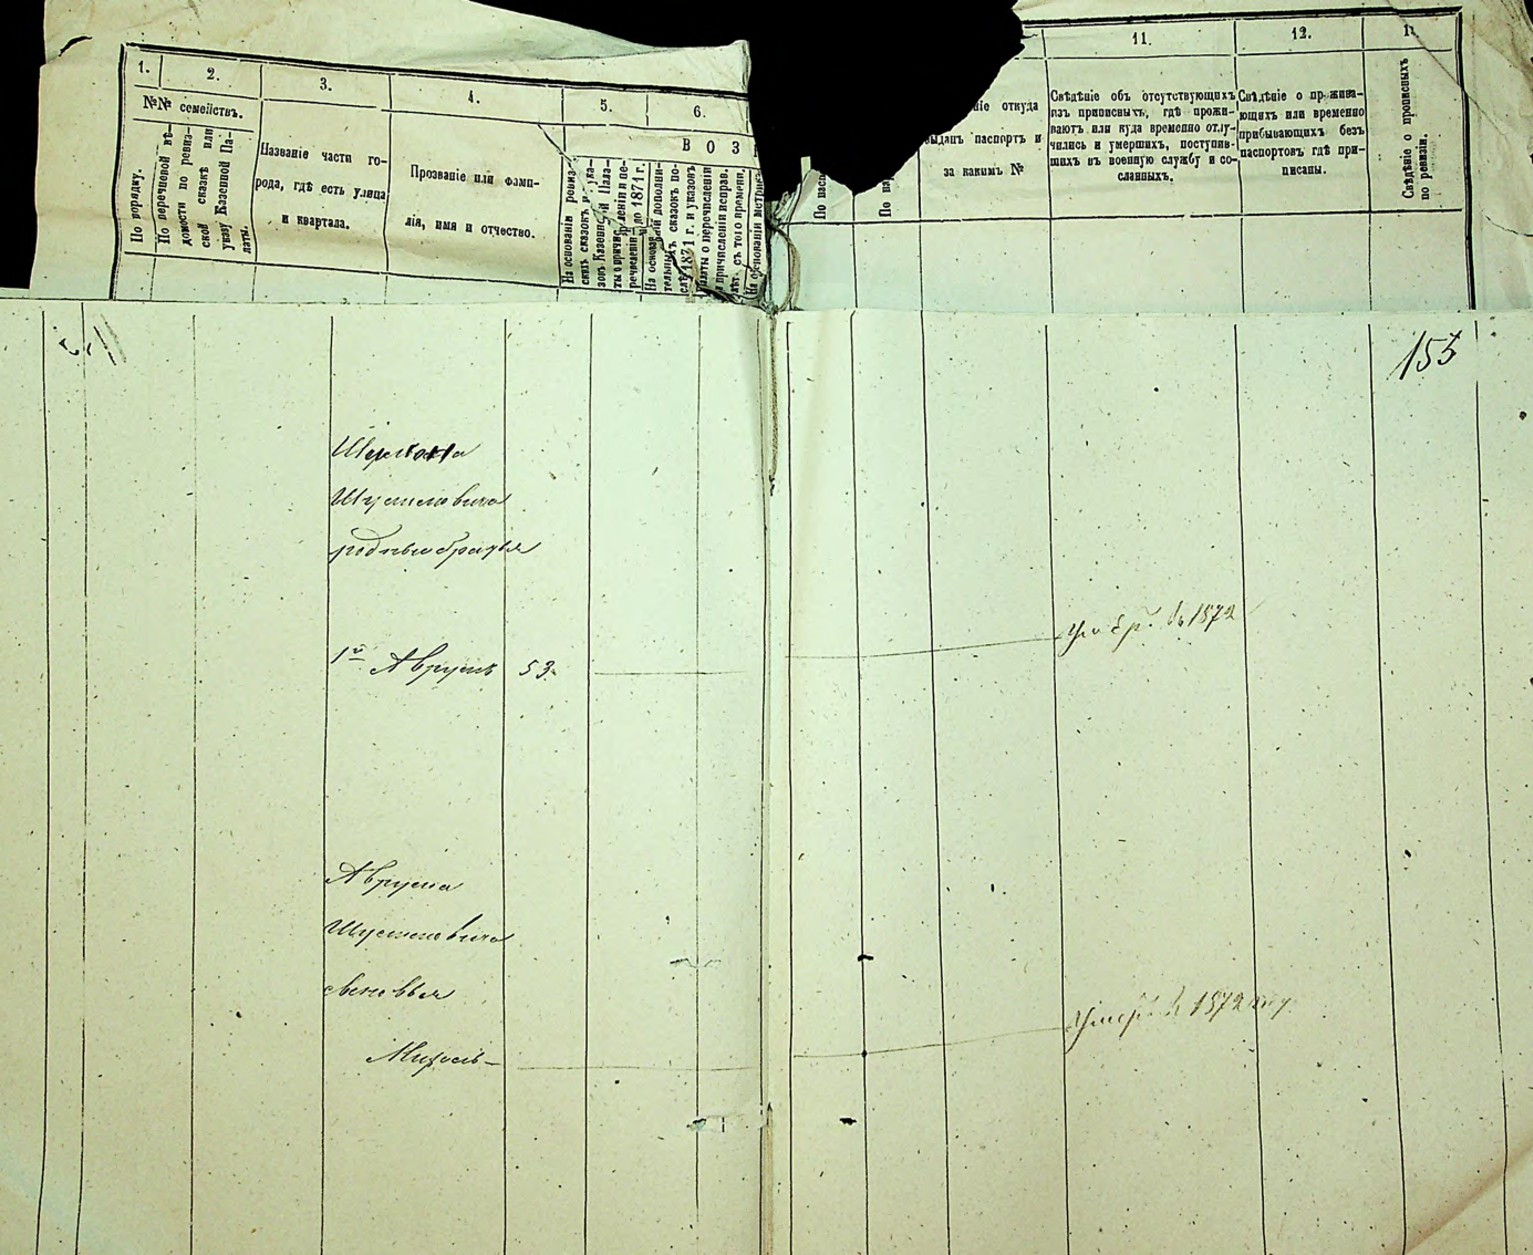 1.
2.
3.
4.
5.
6.
№№ семействъ.
По порядку.
По перечневой вѣ-
домости по ревиз-
ской сказкѣ или
указу Казенной Па-
латы.
Названіе части го-
рода, гдѣ есть улица
и квартала.
Прозваніе или фами-
лія, имя и отчество.
В О З
На основаніи ревиз-
скихъ сказокъ и ука-
зовъ Казенной Пала-
ты о причисленіи и пе-
речисленіи до 1871 г.
На основаніи дополни-
тельныхъ сказокъ по-
слѣ 1871 г. и указовъ
Палаты о перечисленіи
и причисленіи исправ.
лѣт. съ того времени.
На основаніи метрик
11.
12.
По пасп
По на
ніе откуда
выданъ паспортъ и
за какимъ №
Свѣдѣніе объ отсутствующихъ
изъ приписныхъ, гдѣ прожи-
ваютъ или куда временно отлу-
чились и умершихъ, поступив-
шихъ въ военную службу и со-
сланныхъ.
Свѣдѣніе о прожива-
ющихъ или временно
прибывающихъ безъ
паспортовъ гдѣ при-
писаны.
Свѣдѣніе о прописныхъ
по ревизіи.
155
родные братья
1й Аврумъ 53
въ 1872
Аврума
Шусиловича
сыновья
1872